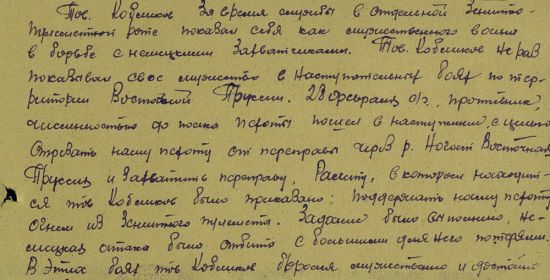 Тов. Кобеляков За время службы в отдельной Зенитно-
пулеметной роте показал себя как мужественного воина
в борьбе с немецкими захватчиками. Тов. Кобеляков не раз
показывал свое мужество в наступательных боях по тер-
ритории Восточной Пруссии. 28 февраля с/г, противник,
численностью до полка пехоты пошел в наступление, с целью
отрезать нашу пехоту от переправы через р. Ногат Восточная
Пруссия и захватить переправу, Расчету, в котором находит-
ся тов Кобеляков было приказано: поддержать нашу пехоту
огнем из Зенитного пулемета. Задание было выполнено, не-
мецкая атака была отбита с большими для него потерями.
В этих боях тов Кобеляков боролся мужественно и достойно